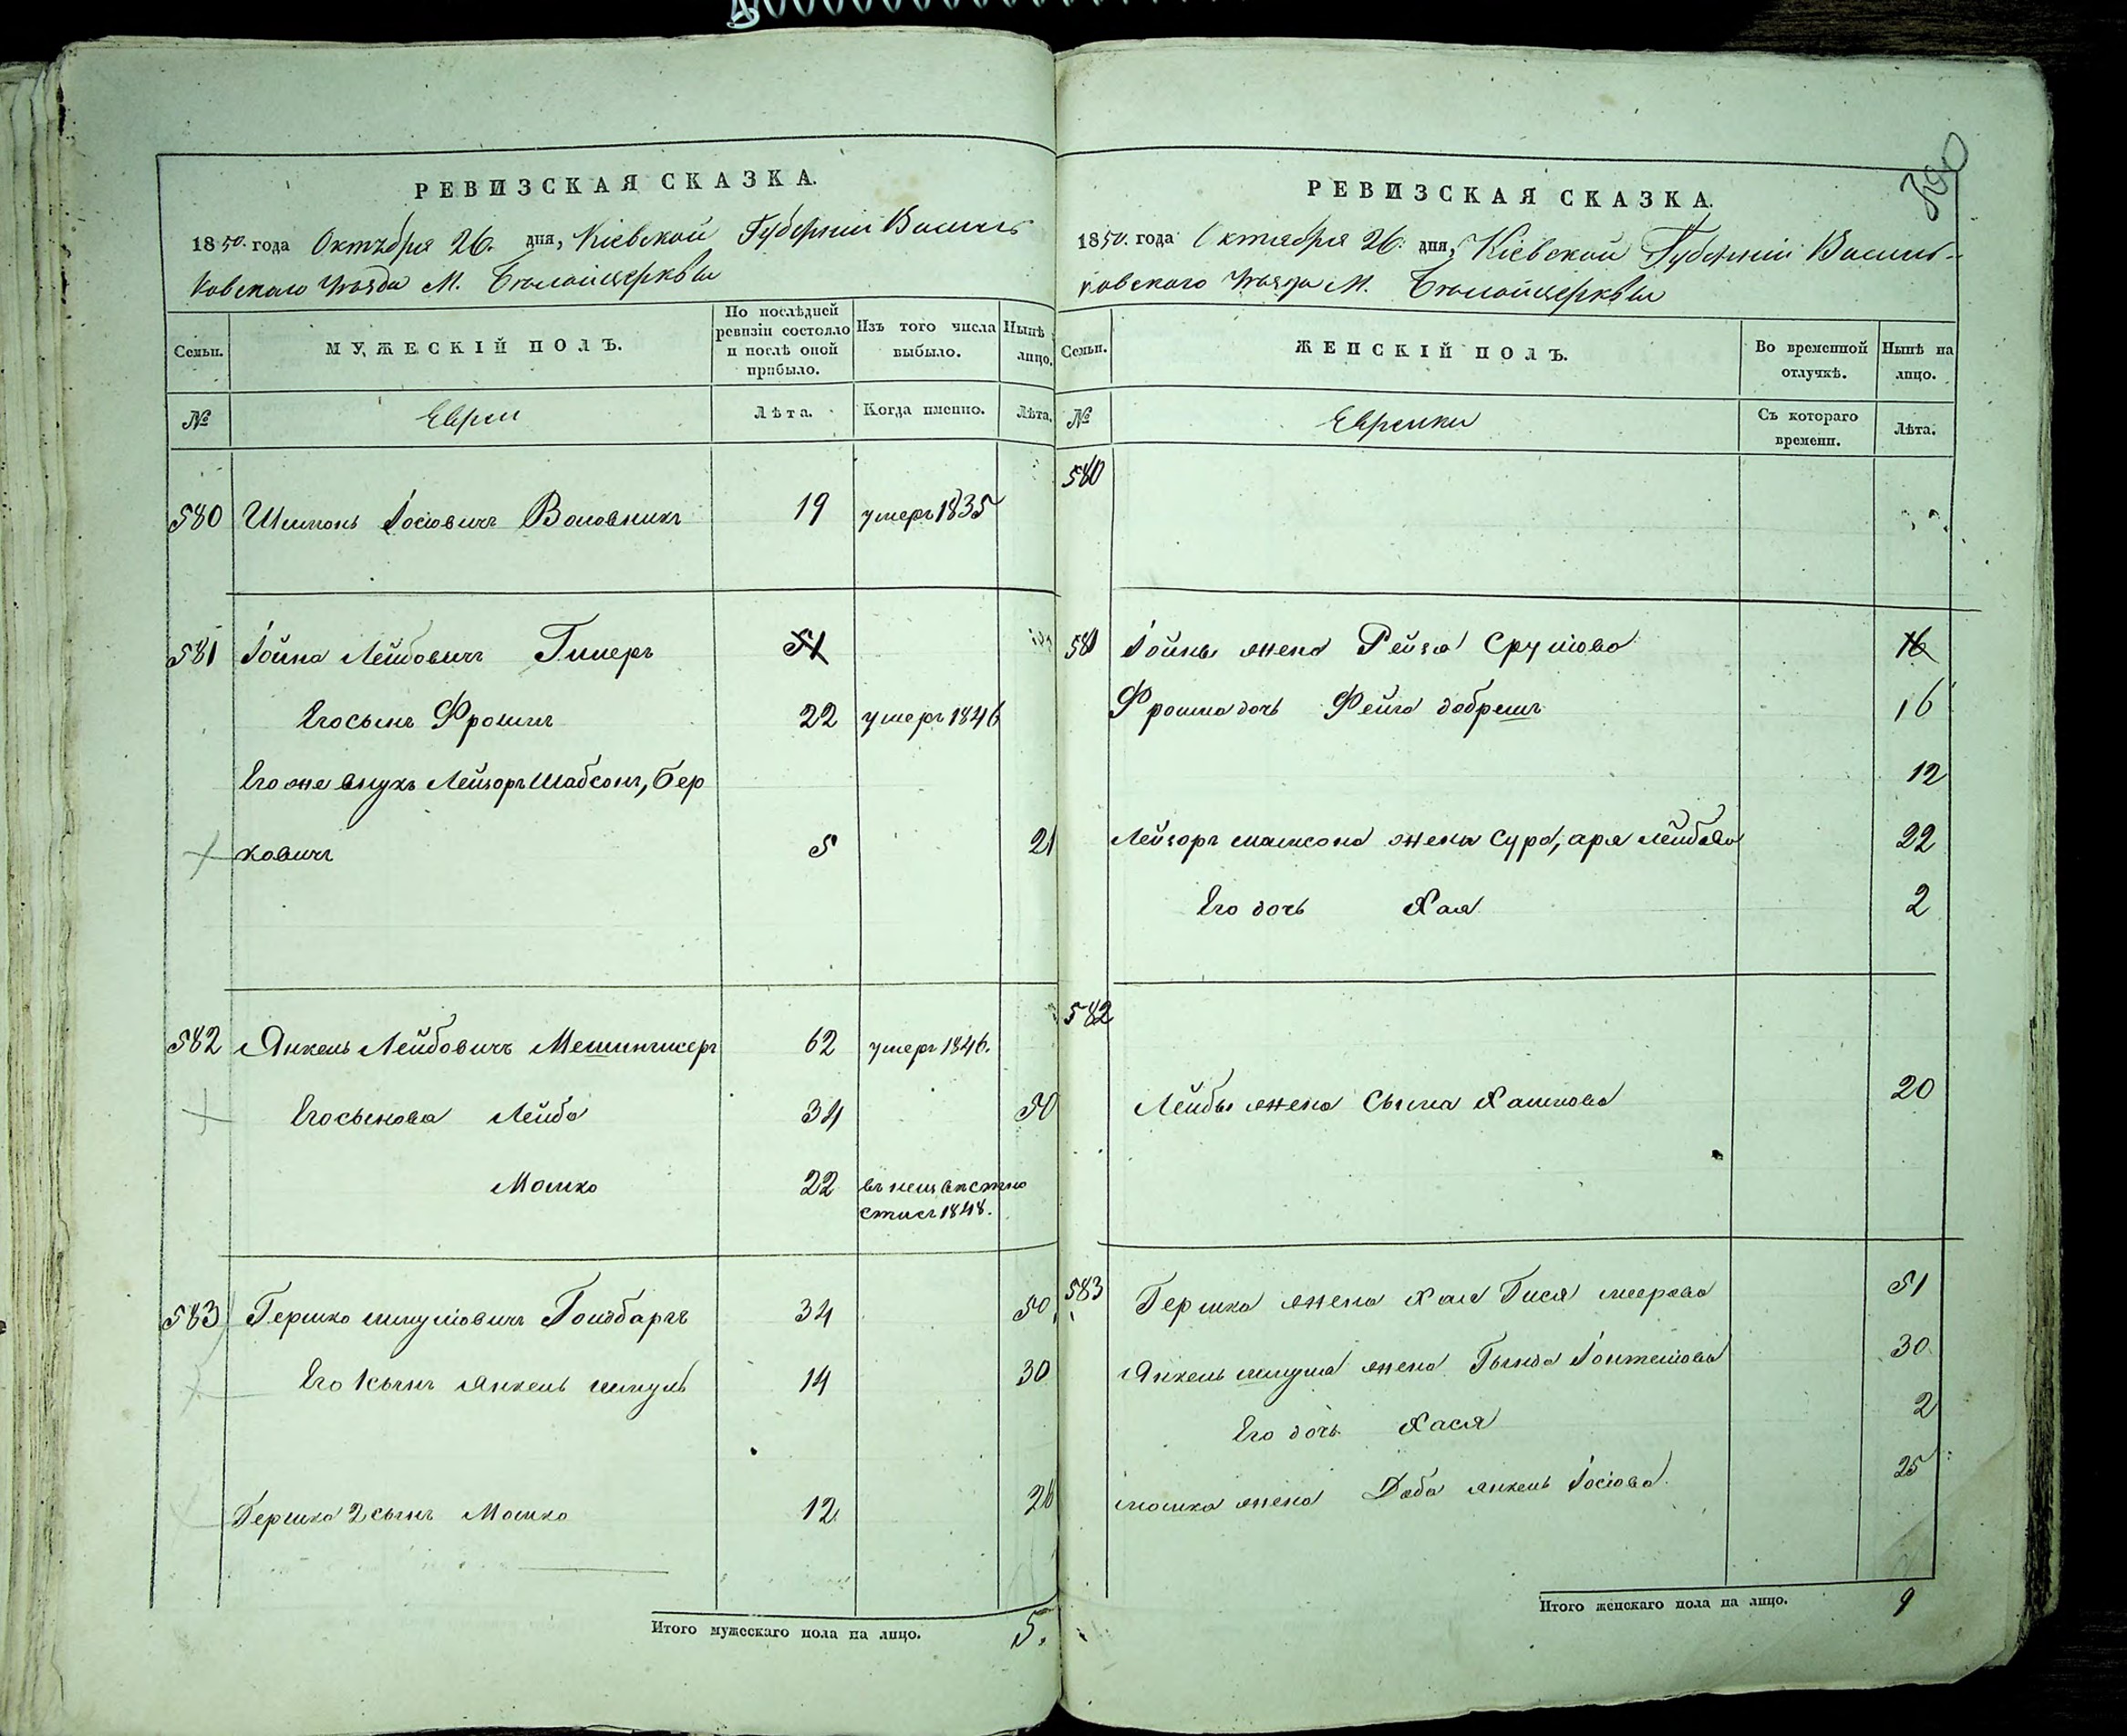 РЕВИЗСКАЯ СКАЗКА.
1850. года Октября 26. дня, Кіевской Губерніи Василь
ковскаго Уѣзда М. Бѣлойцеркви
Семьи.
МУЖЕСКІЙ ПОЛЪ.
По послѣдней
ревизіи состояло
и послѣ оной
прибыло.
Изъ того числа
выбыло.
Нынѣ
лицо.
№
Евреи
Лѣта.
Когда именно.
Лѣта.
580 Шимонъ Іосіовичъ Воловникъ 19 умеръ 1835
581 Іойна Лейбовичъ 51
Его сынъ Фроимъ 22 умеръ 1846
Его же внукъ Лейзоръ Шабсонъ, Бер
ковичъ 5 21
582 Янкель Лейбовичъ 62 умеръ 1846.
Его сыновья Лейба 34 50
Мошко 22 въ неизвѣстно
сти съ 1848.
583 Гершко Шмуліовичъ Голдбаргъ 34 50
Его 1 сынъ Янкель Шмуль 14 30
Гершка 2 сынъ Мошко 12 26
Итого мужескаго пола на лицо. 5.
РЕВИЗСКАЯ СКАЗКА.
1850. года Октября 26. дня, Кіевской Губерніи Василь-
ковскаго Уѣзда М. Бѣлойцеркви
Семьи.
ЖЕНСКІЙ ПОЛЪ.
Во временной
отлучкѣ.
Нынѣ на
лицо.
№
Еврейки
Съ котораго
времени.
Лѣта.
580
581 Іойны жена Рейзя Сруліова 16
Фроима дочь Фейга Добрешъ 16
12
Лейзоръ жена Сура, Лейбова 22
Его дочь Хая 2
582
Лейбы жена Хаимова 20
583 Гершка жена Хая Гися Меерова 51
Янкель Шмуля жена Гында 30
Его дочь Хася 2
Мошка жена Доба Янкель Іосіова 25
Итого женскаго пола на лицо. 9